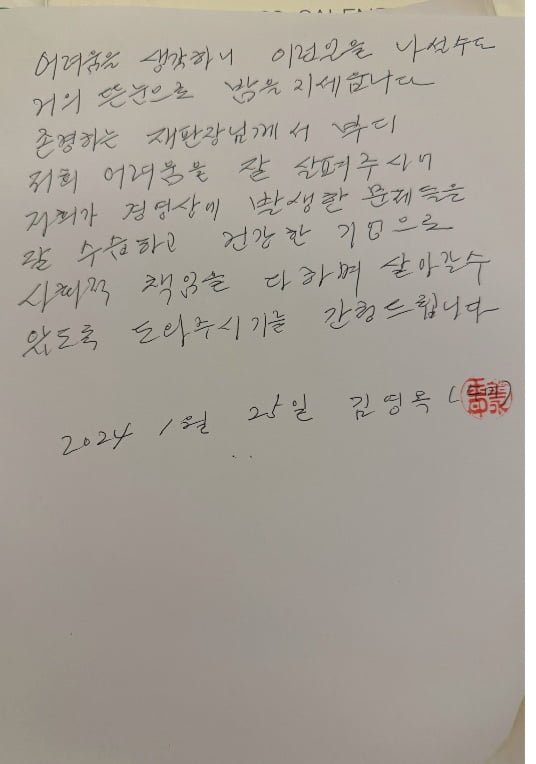 CALEND
어려움을 생각하니 나설수도
거의 뜬눈으로 밤을 지세웁니다
존경하는 재판장님께서 부디
저희 어려움을 잘 살펴주시어
저희가 경영상에 발생한 문제들을
잘 수습하고 건강한 기업으로
사회적 책임을 다하며 살아갈수
있도록 도와주시기를 간청드립니다
2024 1월 25일 김영옥 (